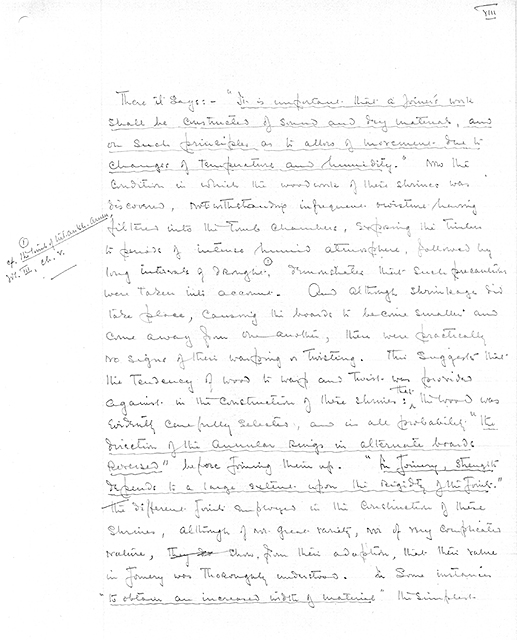 VIII
There it says:- "It is important that a joiner's work
shall be constructed of sound and dry material, and
on such principles as to allow of movement due to
changes of temperature and humidity." Now the
condition in which the woodwork of these shrines was
discovered, notwithstanding infrequent moisture having
filtered into the Tomb Chambers, exposing the timber
to periods of intense humid atmosphere, followed by
long intervals of drought, ① demonstrates that such precautions
were taken into account. And although shrinkage did
take place, causing the boards to become smaller and
come away from one another, there were practically
no signs of their warping or twisting. This suggests that
the tendency of wood to warp and twist was provided
against in the construction of these shrines: that the wood was
evidently carefully selected, and in all probability "the
direction of the annular rings in alternate boards
reversed" before joining them up. "In Joinery, strength
depends to a large extent upon the rigidity of the joints."
The different joints employed in the construction of these
shrines, although of not great variety, nor of very complicated
nature, show, from their adaption, that their value
in joinery was thoroughly understood. In some instances
"to obtain an increased width of material" the simplest
①
cf. The Tomb of Tut.ankh.Amen
Vol. III, ch. V.